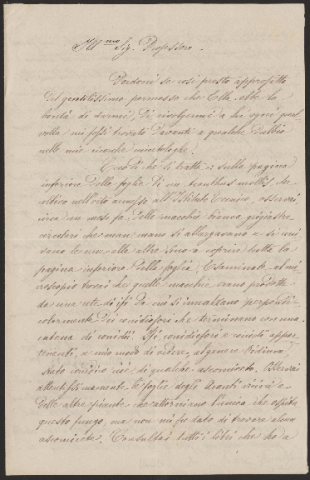 Ill.mo Sig. Professore.
Perdoni se così presto approfitto
del gentilissimo permesso che Ella ebbe la
bontà di darmi, di rivolgermi a lei ogni qual
volta mi fossi trovato davanti a qualche dubbio
nelle mie ricerche micologiche.
Ecco di che si tratta: sulla pagina
inferiore delle foglie di un Acanthus mollis, che
coltivo nell'orto annesso all'Istituto Tecnico, osservai,
circa un mese fa, delle macchie bianco grigiastre
circolari che man mano si allargavano e si uni-
vano le une alle altre sino a coprire tutta la
pagina inferiore della foglia. Esaminate al mi-
croscopio trovai che quelle macchie erano prodotte
da una rete di ife da cui si innalzano perpendi-
colarmente dei conidiofori che terminano con una
catena di conidi. Ife conidiofori e conidi appar-
tenenti, a mio modo di vedere, al genere Oidium,
stato conidico cioè di qualche ascomiceto. Osservai
attentissimamente le foglie degli Acanti vicini e
delle altre piante che attorniano l'unica che ospita
questo fungo, ma non mi fu dato di trovare alcun
ascomicete. Consultai tutti i libri che ho a